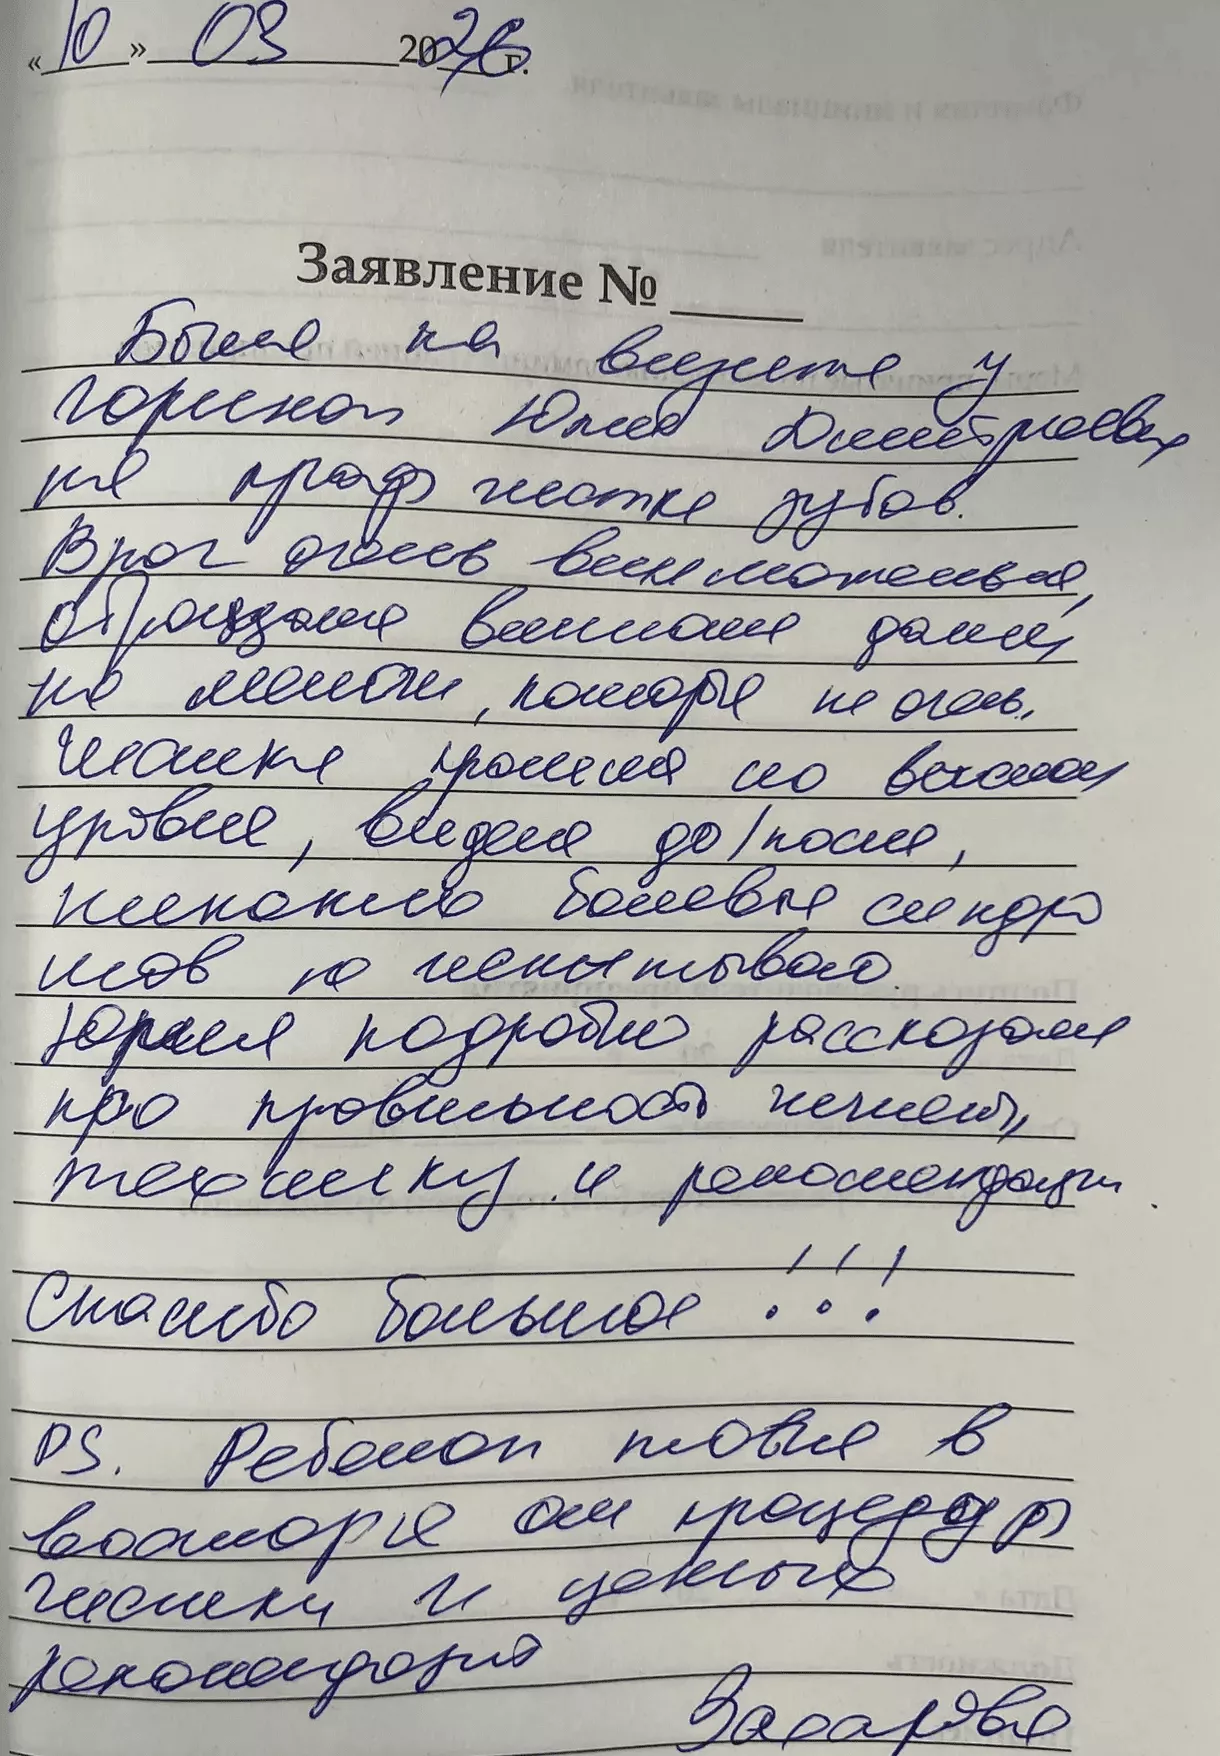 «10» 03 2026 г.
Заявление №
Была на визите у
Горской Юлии Дмитриевн
на проф чистке зубов.
Врач очень внимательная,
обращала внимание даже
на мелочи, которые не очень.
Чистка прошла на высоком
уровне, видела до/после,
никаких болевых синдро
мов не испытываю
Юлия подробно рассказала
про правильность чистки,
технику и рекомендации.
Спасибо большое !!!
PS. Ребенок тоже в
восторге от процедуры
чистки и ценных
рекомендаций
Захарова